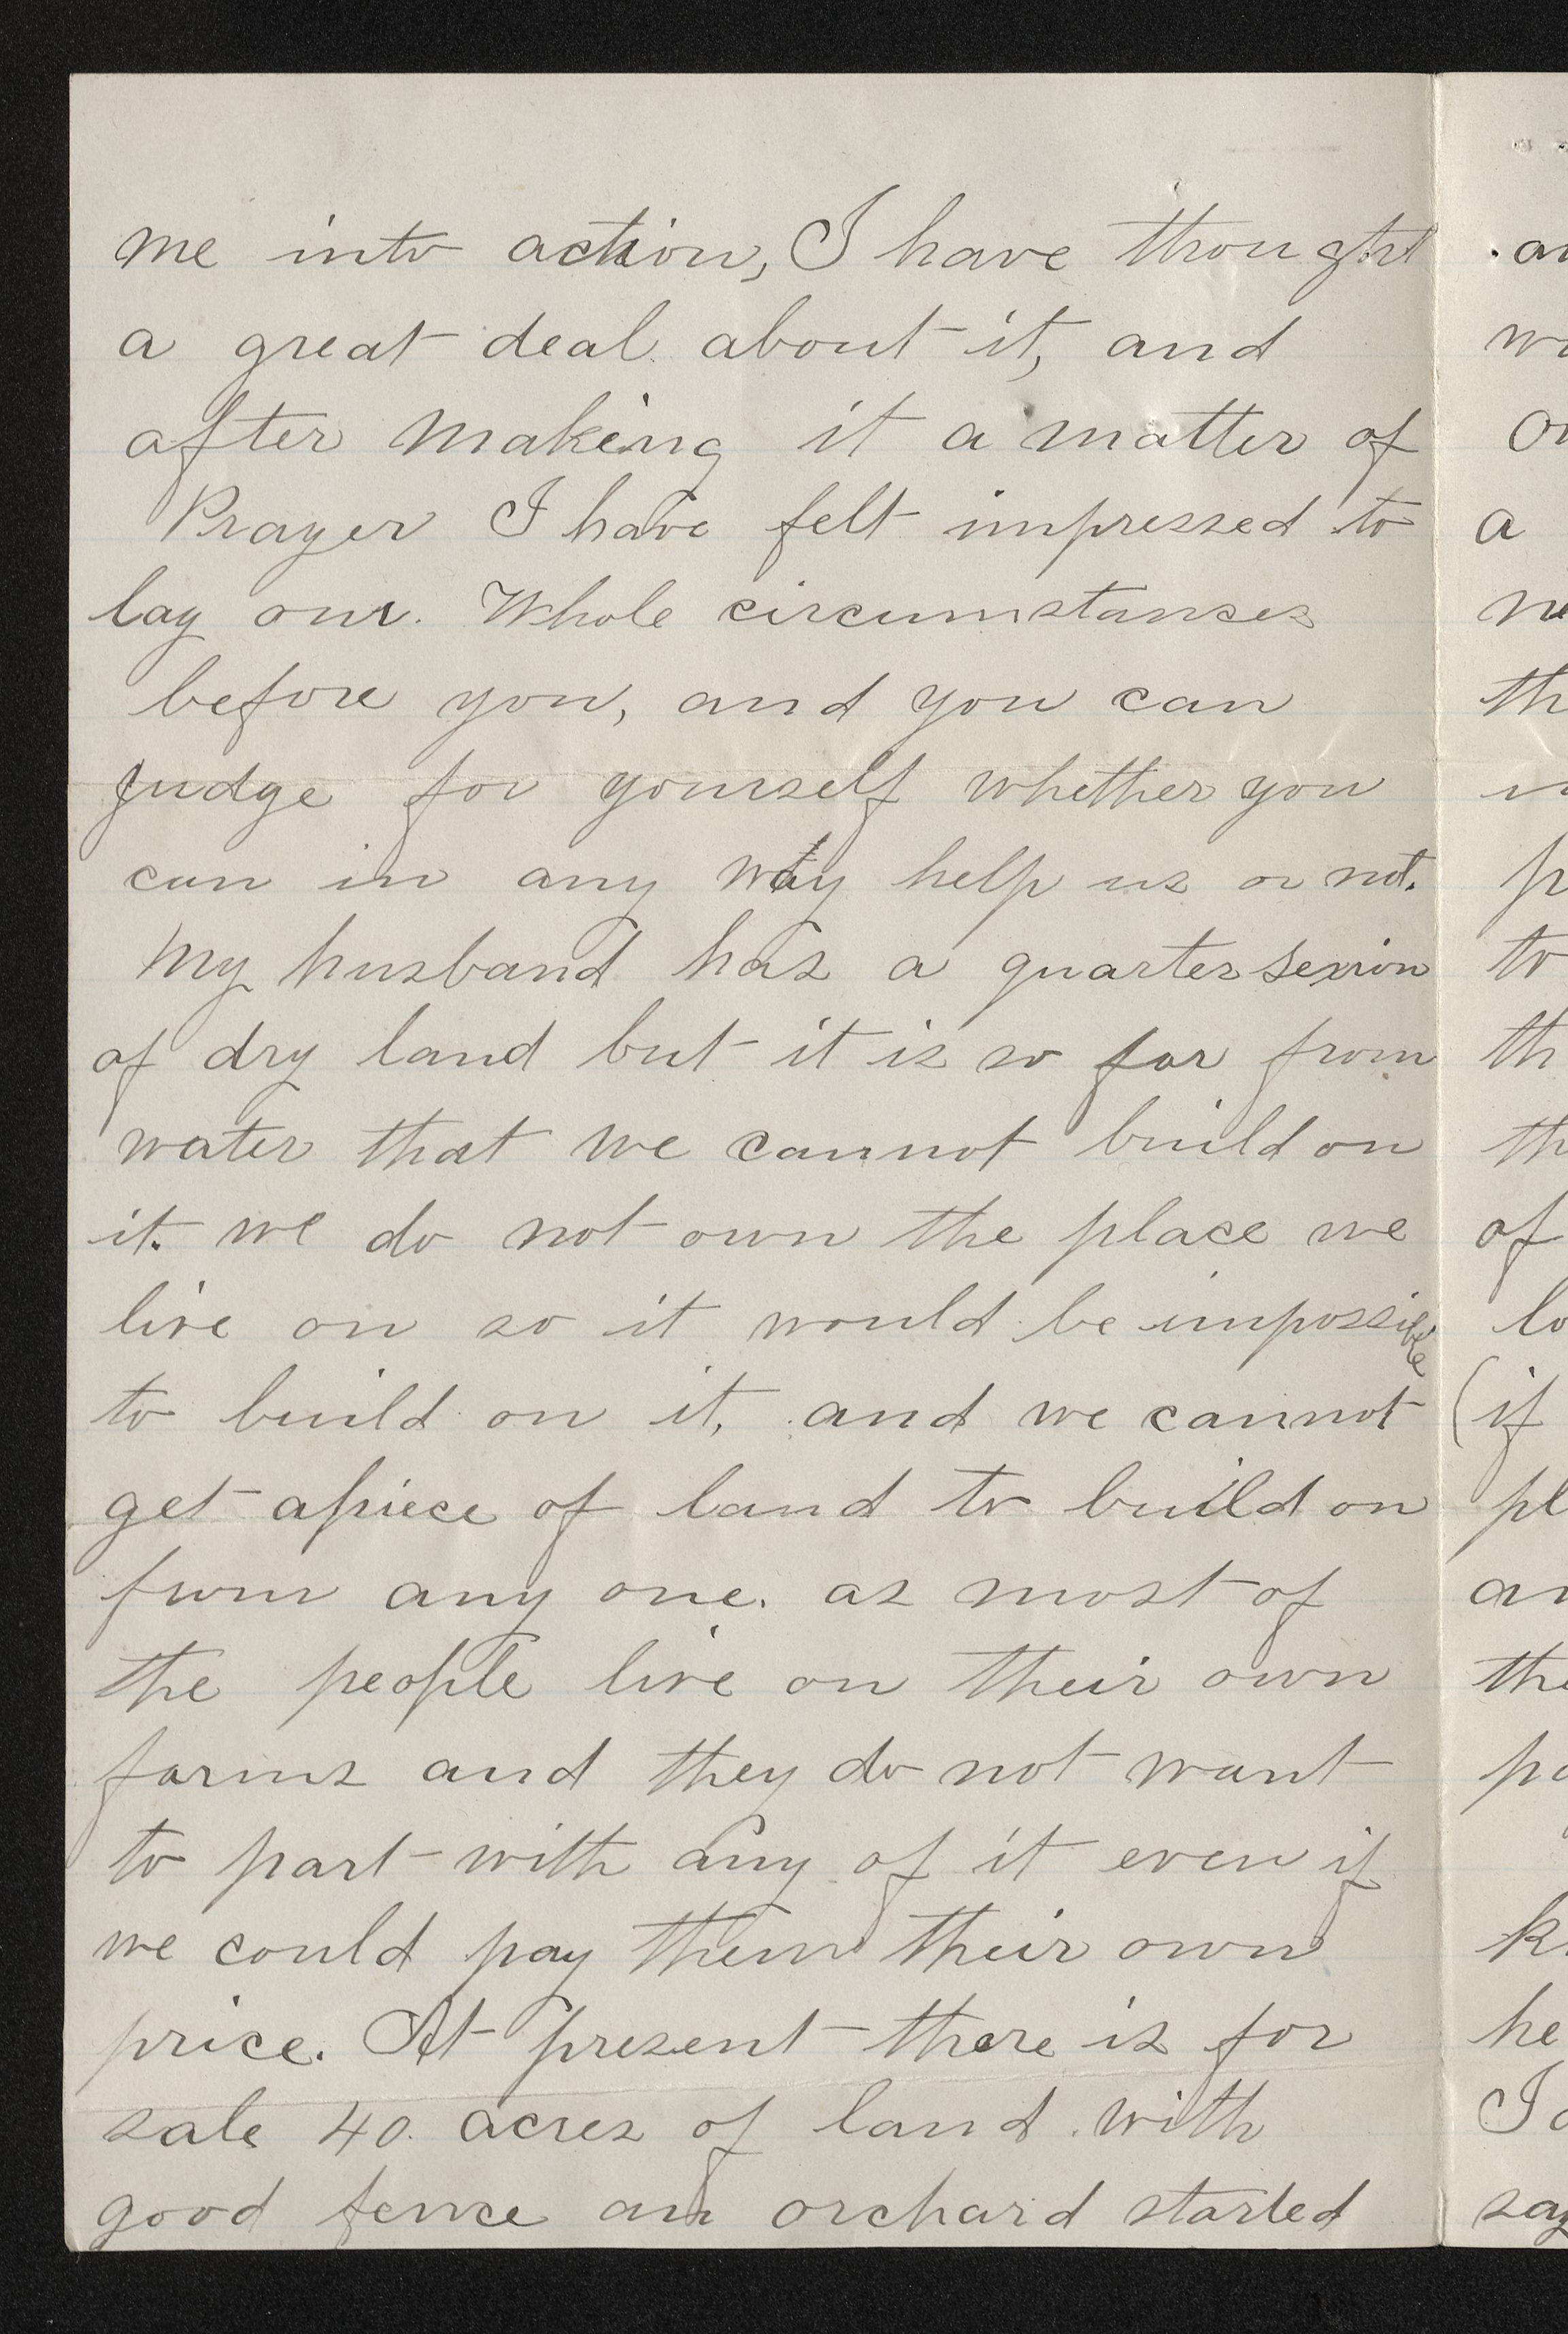 me into action, I have thought
a great deal about it, and
after making it a matter of
Prayer I have felt impressed to
lay our. Whole circumstanses
before you, and you can
judge for yourself whether you
can in any way help us or not.
My husband has a quarter sexion
of dry land but it is so far from
water that we cannot build on
it. we do not own the place we
live on so it would be impossible
to build on it, and we cannot
get apiece of land to build on
from any one. as most of
the people live on their own
farms and they do not want
to part with any of it even if
we could pay them their own
price. At present there is for
sale 40. acres of land with
good fence an orchard started
a
to
of
(if